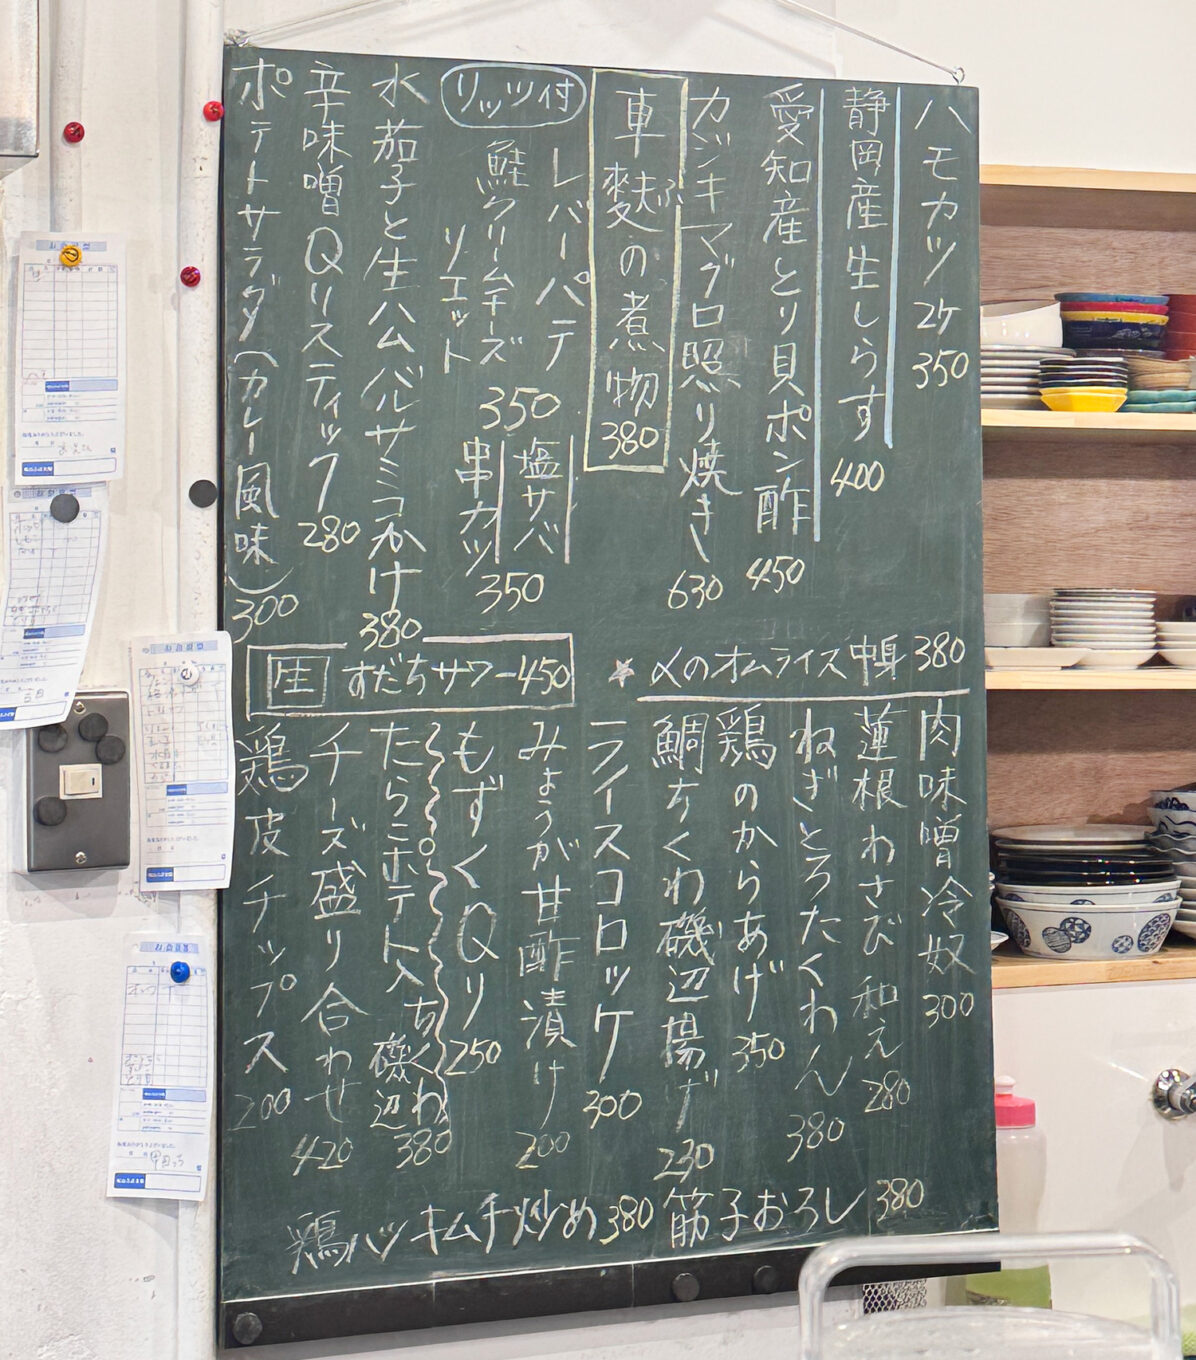 ハモカツ 2ケ 350
静岡産生しらす 400
愛知産とり貝ポン酢 450
カジキマグロ照り焼き 630
車麩の煮物 380
ふ
リッツ付
レバーパテ
鮭クリームチーズ
リエット
350
塩サバ
串カツ
350
水茄子と生ハムバルサミコかけ 380
辛味噌Qリスティック 280
ポテトサラダ(カレー風味) 300
〆のオムライス 中身 380
生 すだちサワー 450
肉味噌冷奴 300
蓮根わさび和え 280
ねぎとろたくわん 380
鶏のからあげ 350
鯛ちくわ磯辺揚げ 230
ライスコロッケ 300
みょうが甘酢漬け 200
もずくQり 250
たらこポテト入ちくわ
磯辺
380
チーズ盛り合わせ 420
鶏皮チップス 200
筋子おろし 380
鶏ハツキムチ炒め 380